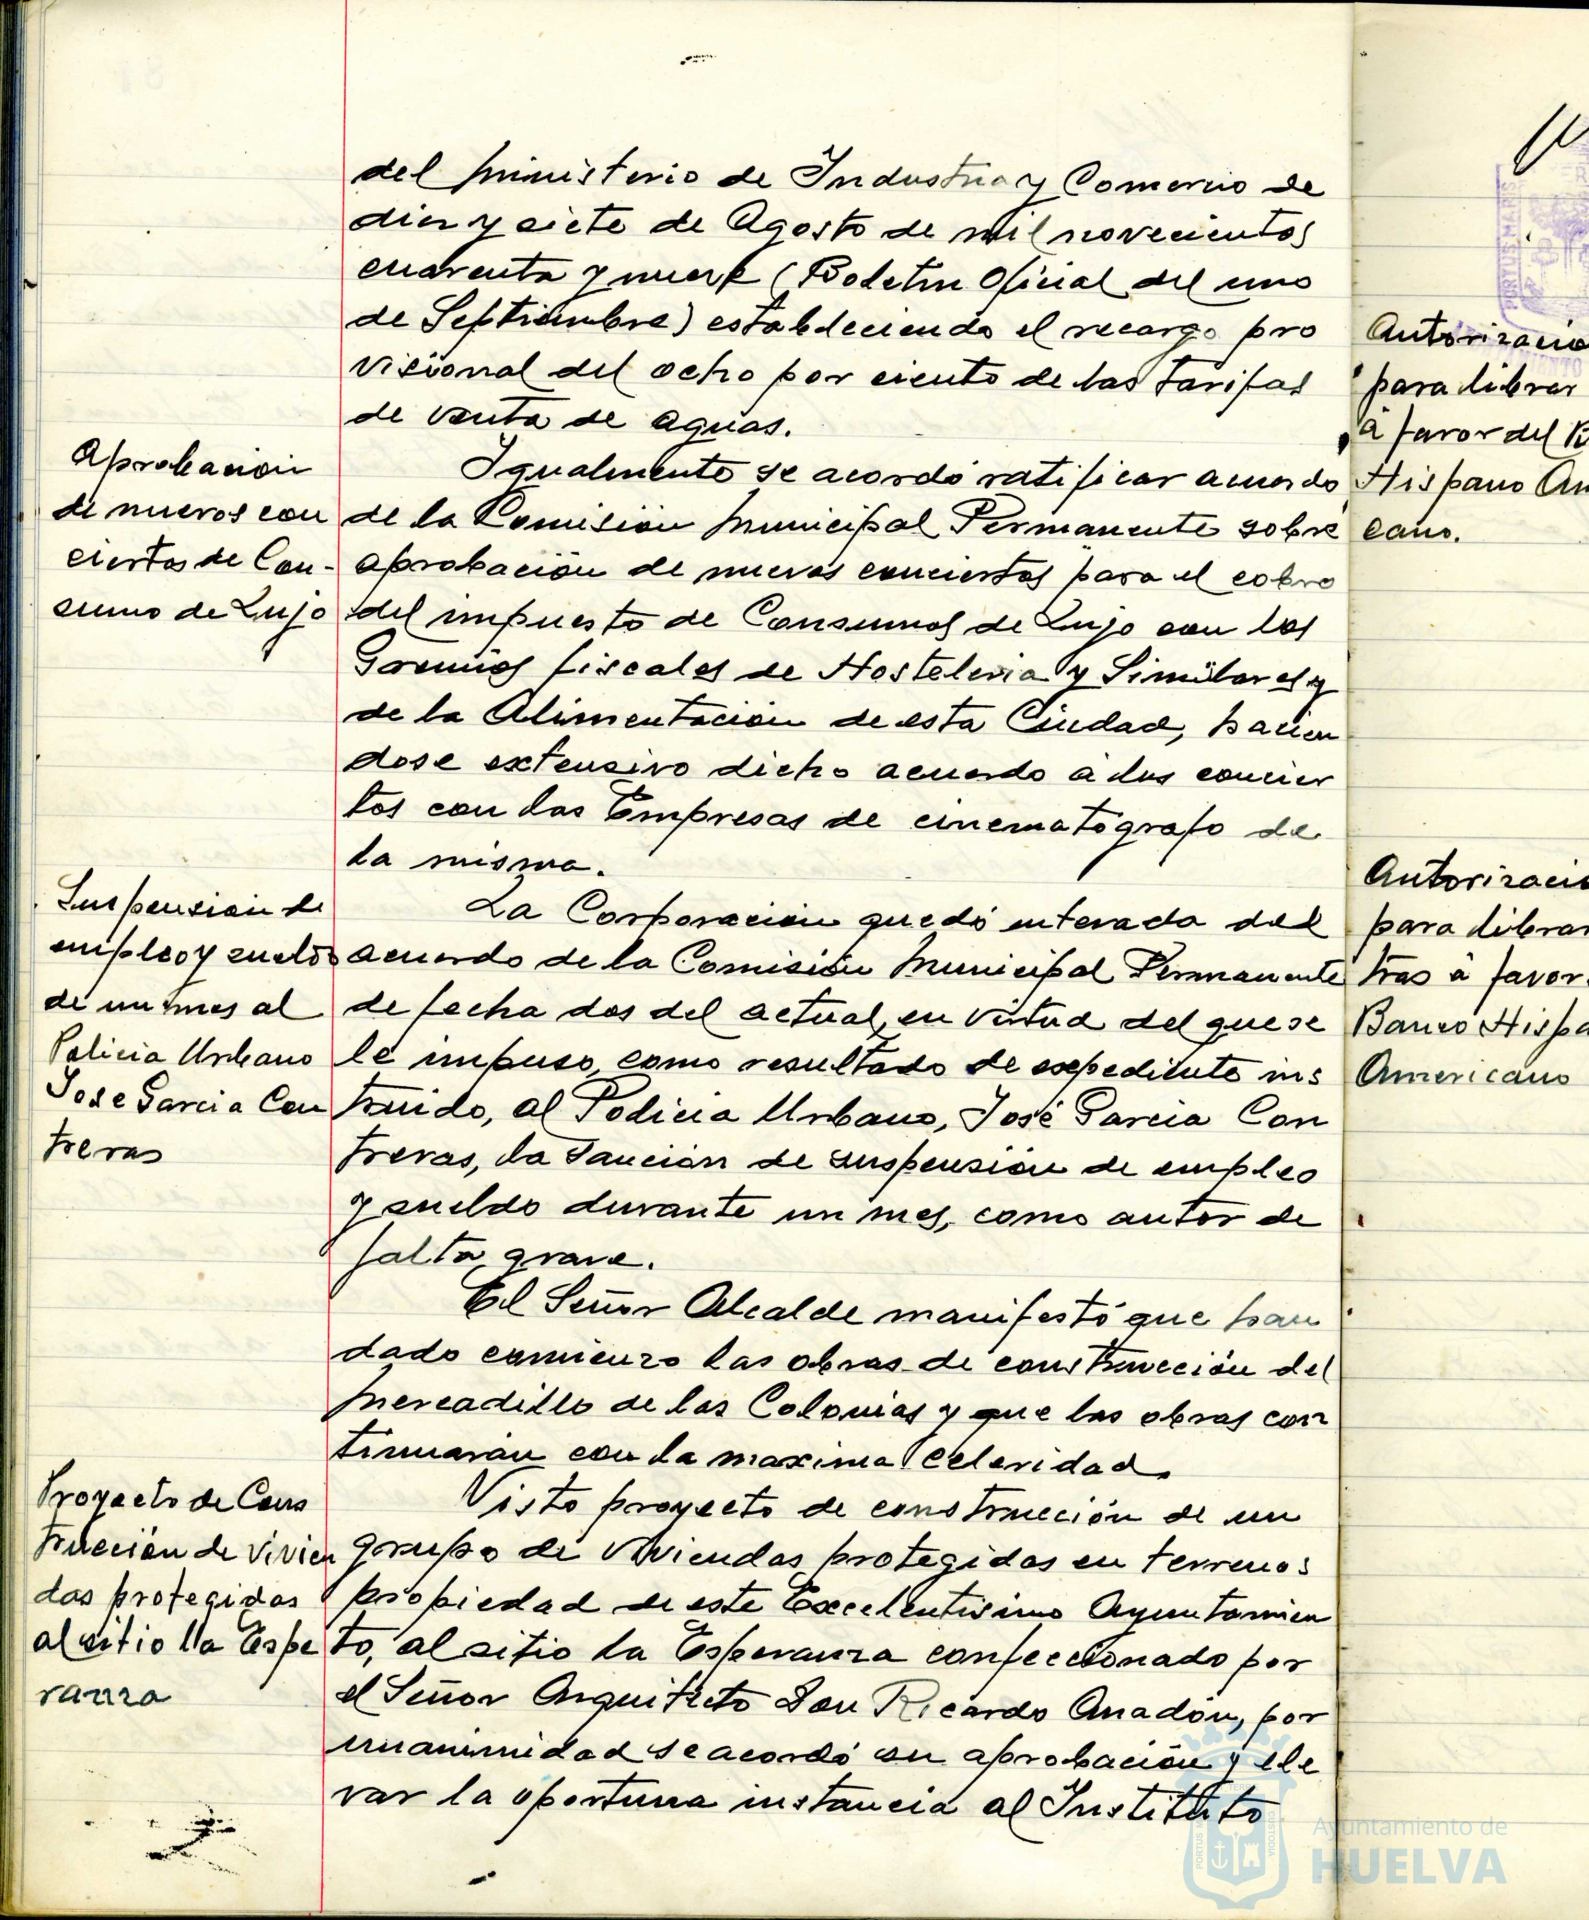 del Ministerio de Industria y Comercio de
diez y siete de Agosto de mil novecientos
cuarenta y nueve (Boletin Oficial del uno
de Septiembre) estableciendo el recargo pro
visional del ocho por ciento de las tarifas
de venta de aguas.
Aprobación
de nuevos con
ciertos de Con-
sumo de Lujo
Igualmente se acordó ratificar acuerdo
de la Comisión Municipal Permanente sobre
aprobación de nuevos conciertos para el cobro
del impuesto de Consumos de Lujo con los
Gremios fiscales de Hosteleria y Similares y
de la Alimentación de esta Ciudad, hacien
dose extensivo dicho acuerdo á los concier
tos con las Empresas de cinematógrafo de
la misma.
Suspensión de
empleo y sueldo
de un mes al
Policia Urbano
Jose Garcia Con
treras
La Corporación quedó enterada del
acuerdo de la Comisión Municipal Permanente
de fecha dos del actual, en virtud del que se
le impuso, como resultado de expediente ins
truido, al Policia Urbano, José Garcia Con
treras, la sanción de suspensión de empleo
y sueldo durante un mes, como autor de
falta grave.
El Señor Alcalde manifestó que han
dado comienzo las obras de construcción del
Mercadillo de las Colonias y que las obras con
tinuarán con la maxima celeridad.
Proyecto de Cons
trucción de vivien
das protegidas
al sitio la Espe
ranza
Visto proyecto de construcción de un
grupo de viviendas protegidas en terrenos
propiedad de este Excelentisimo Ayuntamien
to, al sitio la Esperanza confeccionado por
el Señor Arquitecto Don Ricardo Anadón, por
unanimidad se acordó su aprobación y ele
var la oportuna instancia al Instituto
Autorizacio
para librar
á favor del B
Hispano Am
cano.
Autorizacio
para librar
tras á favor
Banco Hispa
Americano
Ayuntamiento de
HUELVA